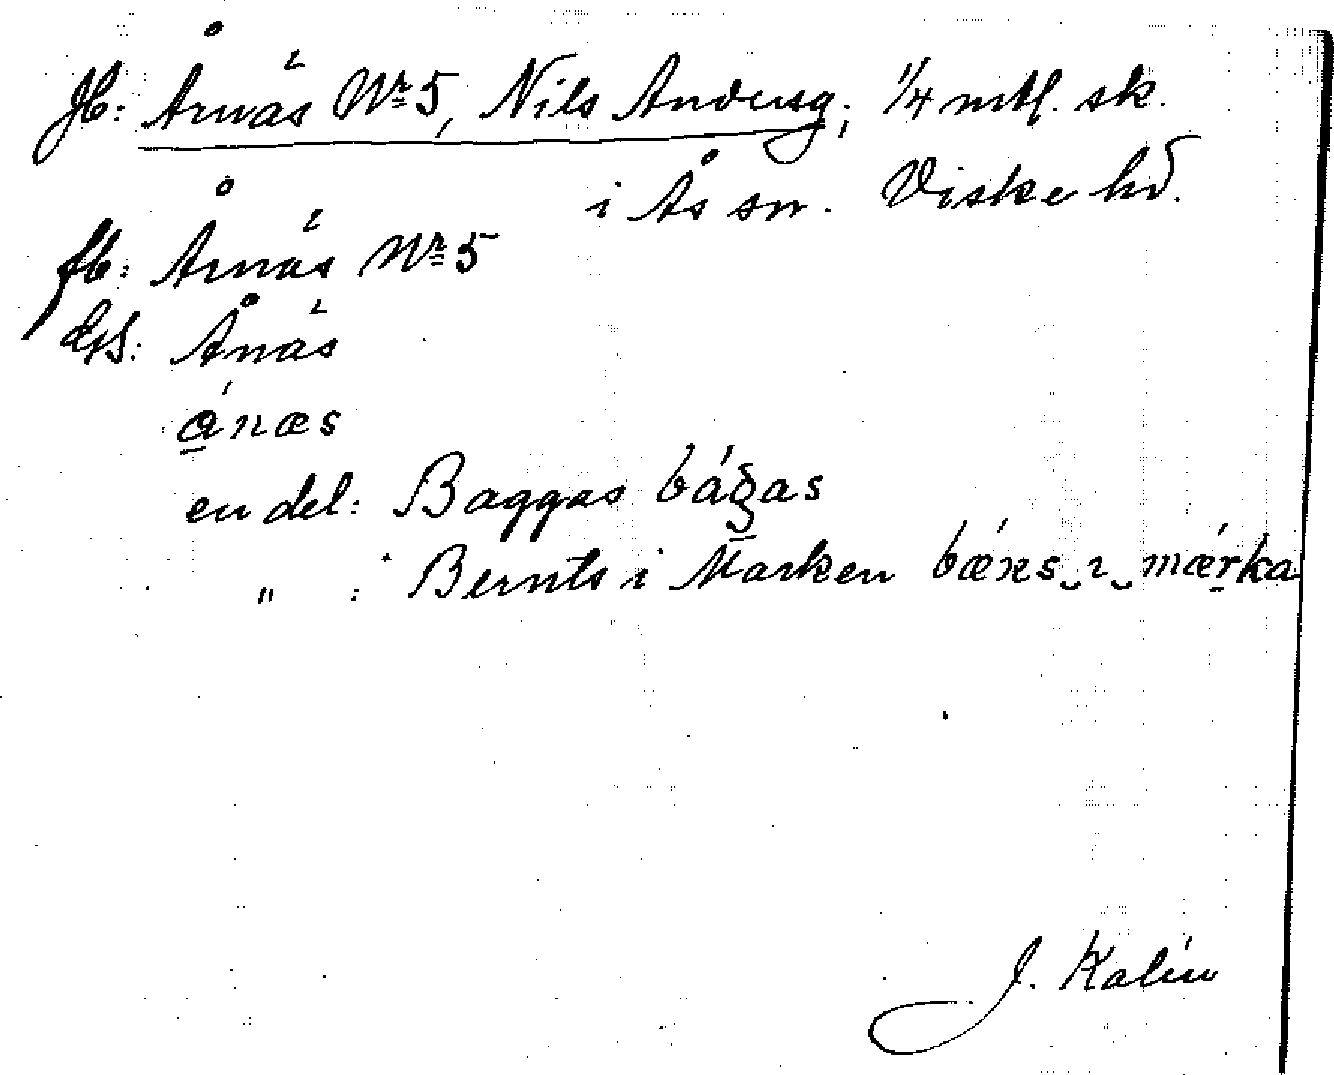 Jb: Årnäs Nr 5, Nils Andersg; 1/4 mtl. sk.
i Ås sn. Viske hd.
fb: Årnäs Nr 5
Ånäs
ånæs
en del: Baggas bágas
" : Bernts i Marken bæns ı mærka
J. Kalén